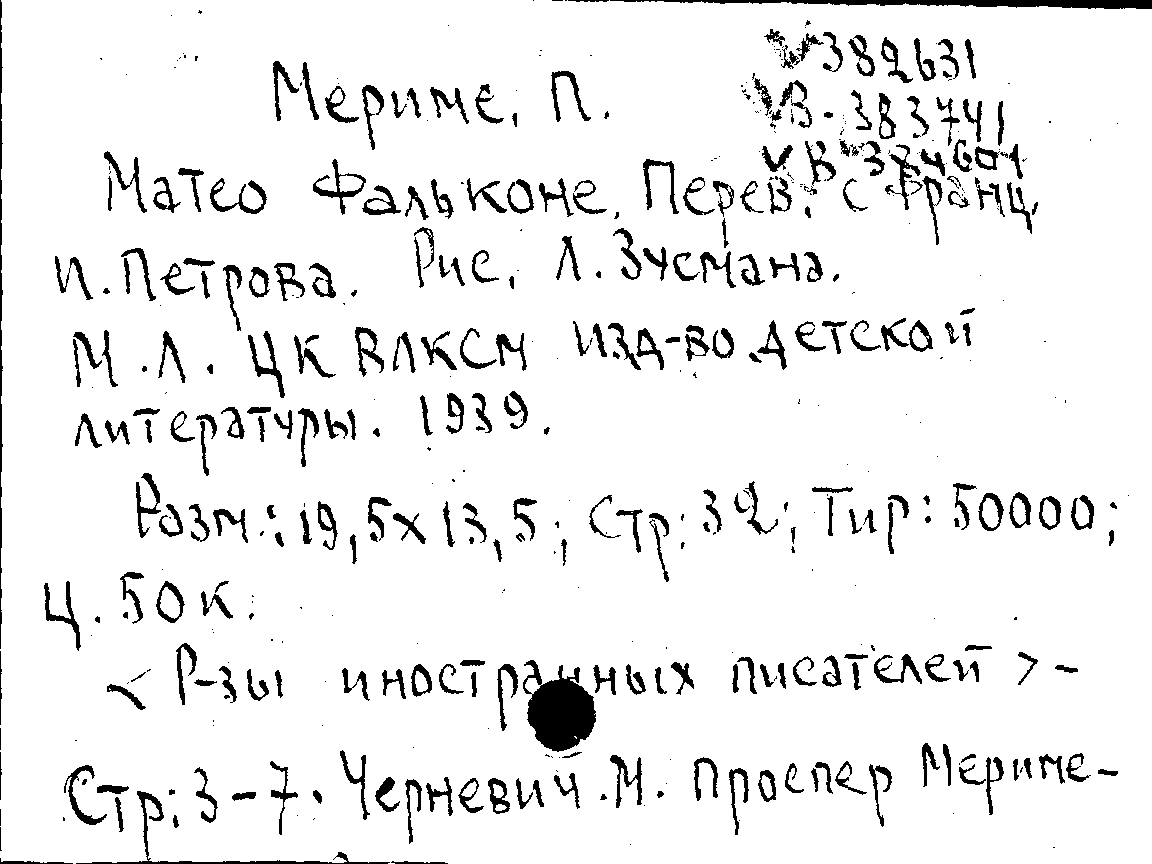 382631
В-383741
В
Мериме, П.
Матео Фальконе. Перев. с франц.
И. Петрова. Рис. Л. Зусмана.
М.Л. ЦК ВЛКСМ изд-во детской
литературы. 1939.
Разм.: 19,5х13,5; Стр: 32; Тир: 50000;
Ц. 50к.
< Р-зы иностранных писателей > -
Стр: 3-7. Черневич.М. Проспер Мериме-